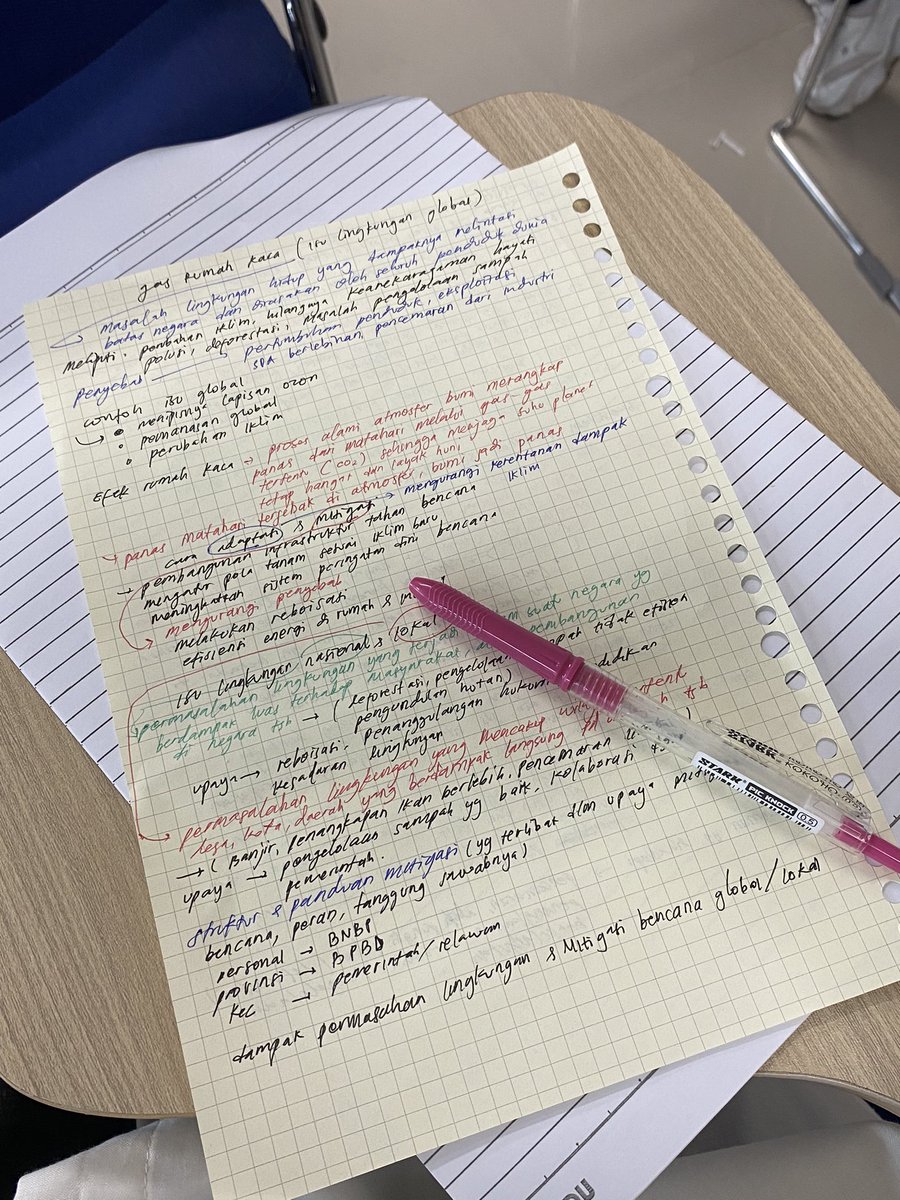 gas rumah kaca (isu lingkungan global)
masalah lingkungan hidup yang dampaknya melintasi
batas negara dan dirasakan oleh seluruh penduduk dunia
meliputi: perubahan iklim, hilangnya keanekaragaman hayati
polusi, deforestasi, masalah pengelolaan sampah
penyebab → pertumbuhan penduduk, eksploitasi
SDA berlebihan, pencemaran dari industri
contoh isu global
menipisnya lapisan ozon
pemanasan global
perubahan iklim
Efek rumah kaca → proses alami atmosfer bumi merangkap
panas dari matahari melalui gas gas
tertentu (CO2) sehingga menjaga suhu planet
tetap hangat dan layak huni
→ panas matahari terjebak di atmosfer, bumi jadi panas
cara adaptasi & mitigasi → mengurangi kerentanan dampak
iklim
→ pembangunan infrastruktur tahan bencana
mengatur pola tanam sesuai iklim baru
meningkatkan sistem peringatan dini bencana
→ mengurangi penyebab
melakukan reboisasi
efisiensi energi di rumah &
isu lingkungan nasional & lokal
permasalahan lingkungan yang suatu negara yg
berdampak luas terhadap masyarakat, pembangunan
di negara tsb → (deforestasi, pengelolaan tidak efisien
penggundulan hutan)
upaya → reboisasi, penanggulangan
kesadaran lingkungan
permasalahan lingkungan yang mencakup
desa, kota, daerah yang berdampak langsung tsb
→ (Banjir, penangkapan ikan berlebih, pencemaran
upaya → pengelolaan sampah yg baik, kolaborasi
pemerintah.
struktur & panduan mitigasi (yg terlibat dlm upaya
bencana, peran, tanggung jawabnya)
personal → BNBP
provinsi → BPBD
kec → pemerintah/relawan
dampak permasahan lingkungan & Mitigati bencana global/lokal
STARK PIC KNOCK 0.5
KOKORO